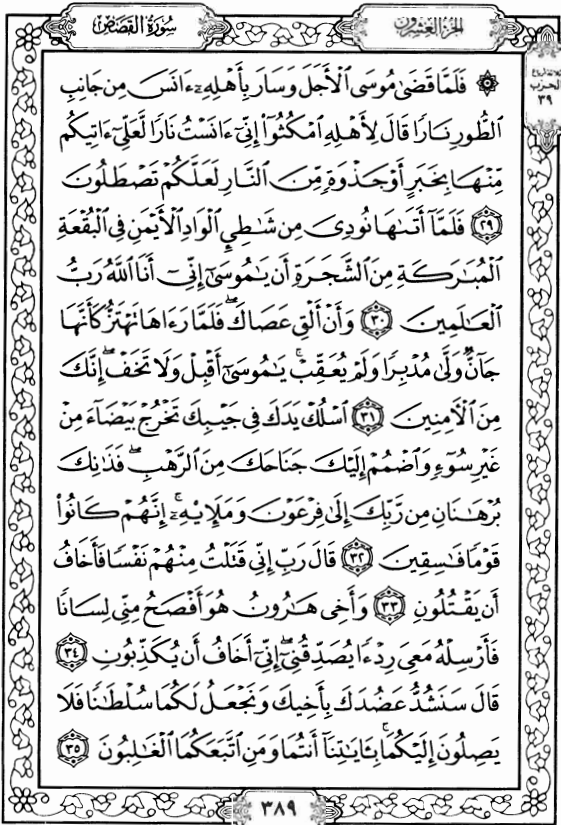 سُورَةُ القَصَصِ
الجزء العشرون
ثلاثة أرباع
الحزب
٣٩
۞ فَلَمَّا قَضَىٰ مُوسَى ٱلْأَجَلَ وَسَارَ بِأَهْلِهِۦٓ ءَانَسَ مِن جَانِبِ
ٱلطُّورِ نَارًا قَالَ لِأَهْلِهِ ٱمْكُثُوٓا۟ إِنِّىٓ ءَانَسْتُ نَارًا لَّعَلِّىٓ ءَاتِيكُم
مِّنْهَا بِخَبَرٍ أَوْ جَذْوَةٍ مِّنَ ٱلنَّارِ لَعَلَّكُمْ تَصْطَلُونَ
٢٩ فَلَمَّآ أَتَىٰهَا نُودِىَ مِن شَـٰطِئِ ٱلْوَادِ ٱلْأَيْمَنِ فِى ٱلْبُقْعَةِ
ٱلْمُبَـٰرَكَةِ مِنَ ٱلشَّجَرَةِ أَن يَـٰمُوسَىٰٓ إِنِّىٓ أَنَا ٱللَّهُ رَبُّ
ٱلْعَـٰلَمِينَ ٣٠ وَأَنْ أَلْقِ عَصَاكَ ۖ فَلَمَّا رَءَاهَا تَهْتَزُّ كَأَنَّهَا
جَآنٌّ وَلَّىٰ مُدْبِرًا وَلَمْ يُعَقِّبْ ۚ يَـٰمُوسَىٰٓ أَقْبِلْ وَلَا تَخَفْ ۖ إِنَّكَ
مِنَ ٱلْـَٔامِنِينَ ٣١ ٱسْلُكْ يَدَكَ فِى جَيْبِكَ تَخْرُجْ بَيْضَآءَ مِنْ
غَيْرِ سُوٓءٍ وَٱضْمُمْ إِلَيْكَ جَنَاحَكَ مِنَ ٱلرَّهْبِ ۖ فَذَٰنِكَ
بُرْهَـٰنَانِ مِن رَّبِّكَ إِلَىٰ فِرْعَوْنَ وَمَلَإِي۟هِۦٓ ۚ إِنَّهُمْ كَانُوا۟
قَوْمًا فَـٰسِقِينَ ٣٢ قَالَ رَبِّ إِنِّى قَتَلْتُ مِنْهُمْ نَفْسًا فَأَخَافُ
أَن يَقْتُلُونِ ٣٣ وَأَخِى هَـٰرُونُ هُوَ أَفْصَحُ مِنِّى لِسَانًا
فَأَرْسِلْهُ مَعِىَ رِدْءًا يُصَدِّقُنِىٓ ۖ إِنِّىٓ أَخَافُ أَن يُكَذِّبُونِ ٣٤
قَالَ سَنَشُدُّ عَضُدَكَ بِأَخِيكَ وَنَجْعَلُ لَكُمَا سُلْطَـٰنًا فَلَا
يَصِلُونَ إِلَيْكُمَا ۚ بِـَٔايَـٰتِنَآ أَنتُمَا وَمَنِ ٱتَّبَعَكُمَا ٱلْغَـٰلِبُونَ ٣٥
٣٨٩